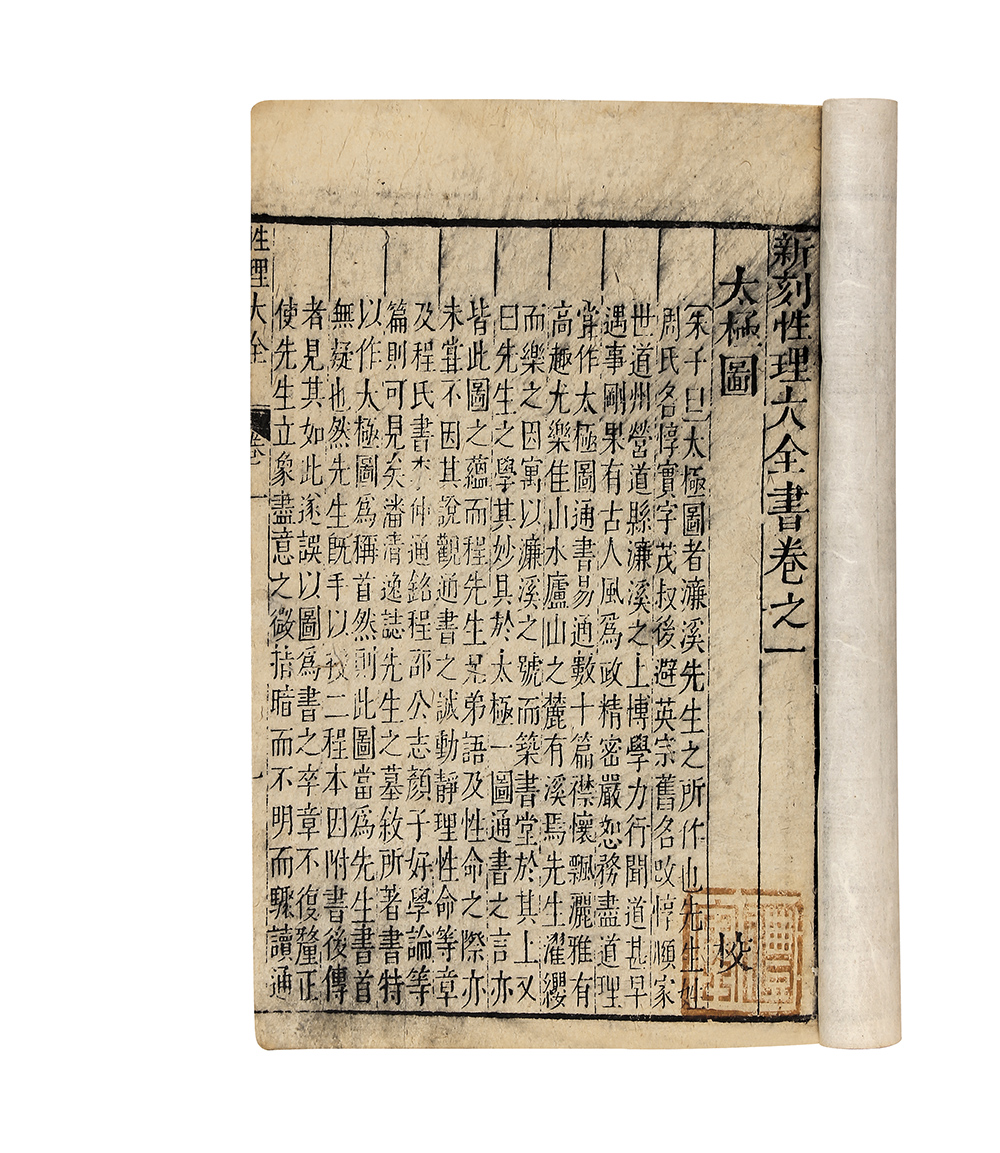 新刻性理大全書卷之一
太極圖
校
朱子曰太極圖者濂溪先生之所作也先生姓
周氏名惇實字茂叔後避英宗舊名改惇頤家
世道州營道縣濂溪之上博學力行聞道甚早
遇事剛果有古人風爲政精密嚴恕務盡道理
嘗作太極圖通書易通數十篇襟懷飄灑雅有
高趣尤樂佳山水廬山之麓有溪焉先生濯纓
而樂之因寓以濂溪之號而築書堂於其上又
曰先生之學其妙具於太極一圖通書之言亦
皆此圖之蘊而程先生兄弟語及性命之際亦
未嘗不因其說觀通書之誠動靜理性命等章
及程氏書李仲通銘程邵公志顏子好學論等
篇則可見矣潘清逸誌先生之墓敘所著書特
以作大極圖爲稱首然則此圖當爲先生書首
無疑也然先生旣手以授二程本因附書後傳
者見其如此遂誤以圖爲書之卒章不復釐正
使先生立象盡意之微指暗而不明而驟讀通
性理大全 卷一